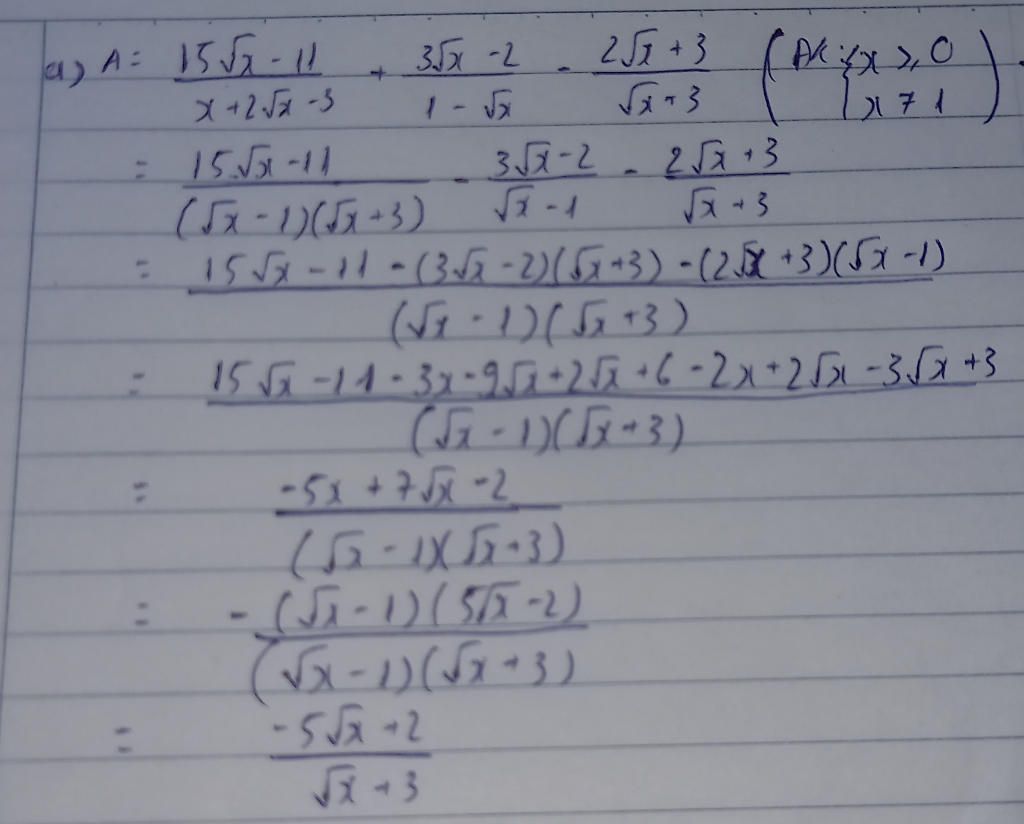 a) A = (15√x - 11)/(x + 2√x - 3) + (3√x - 2)/(1 - √x) - (2√x + 3)/(√x + 3) (ĐK: {x ≥ 0 {x ≠ 1)
= (15√x - 11)/((√x - 1)(√x + 3)) - (3√x - 2)/(√x - 1) - (2√x + 3)/(√x + 3)
= (15√x - 11 - (3√x - 2)(√x + 3) - (2√x + 3)(√x - 1))/((√x - 1)(√x + 3))
= (15√x - 11 - 3x - 9√x + 2√x + 6 - 2x + 2√x - 3√x + 3)/((√x - 1)(√x + 3))
= (-5x + 7√x - 2)/((√x - 1)(√x + 3))
= -(√x - 1)(5√x - 2)/((√x - 1)(√x + 3))
= (-5√x + 2)/(√x + 3)